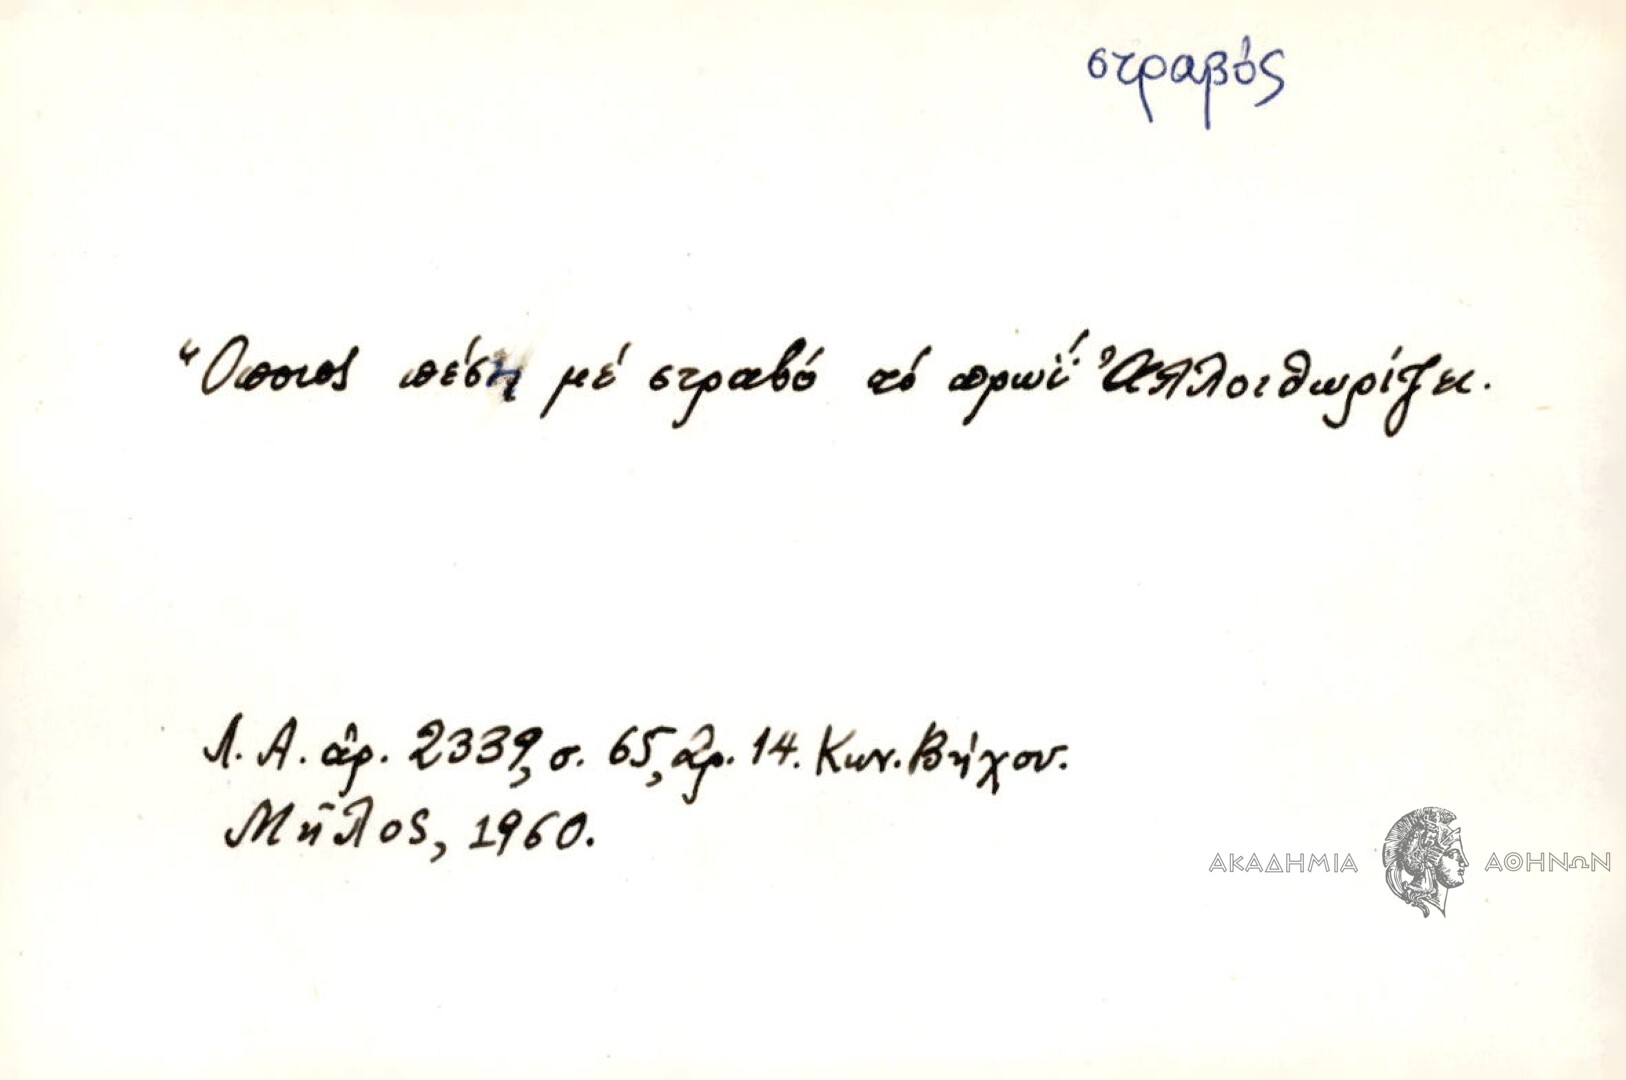 στραβός
Ὅποιος πέση μέ στραβό τό πρωΐ Ἀλλοιθωρίζει.
Λ. Α. ἀρ. 2339, σ. 65, ἀρ. 14. Κων. Βήχου.
Μῆλος, 1960.
ΑΚΑΔΗΜΙΑ ΑΘΗΝΩΝ